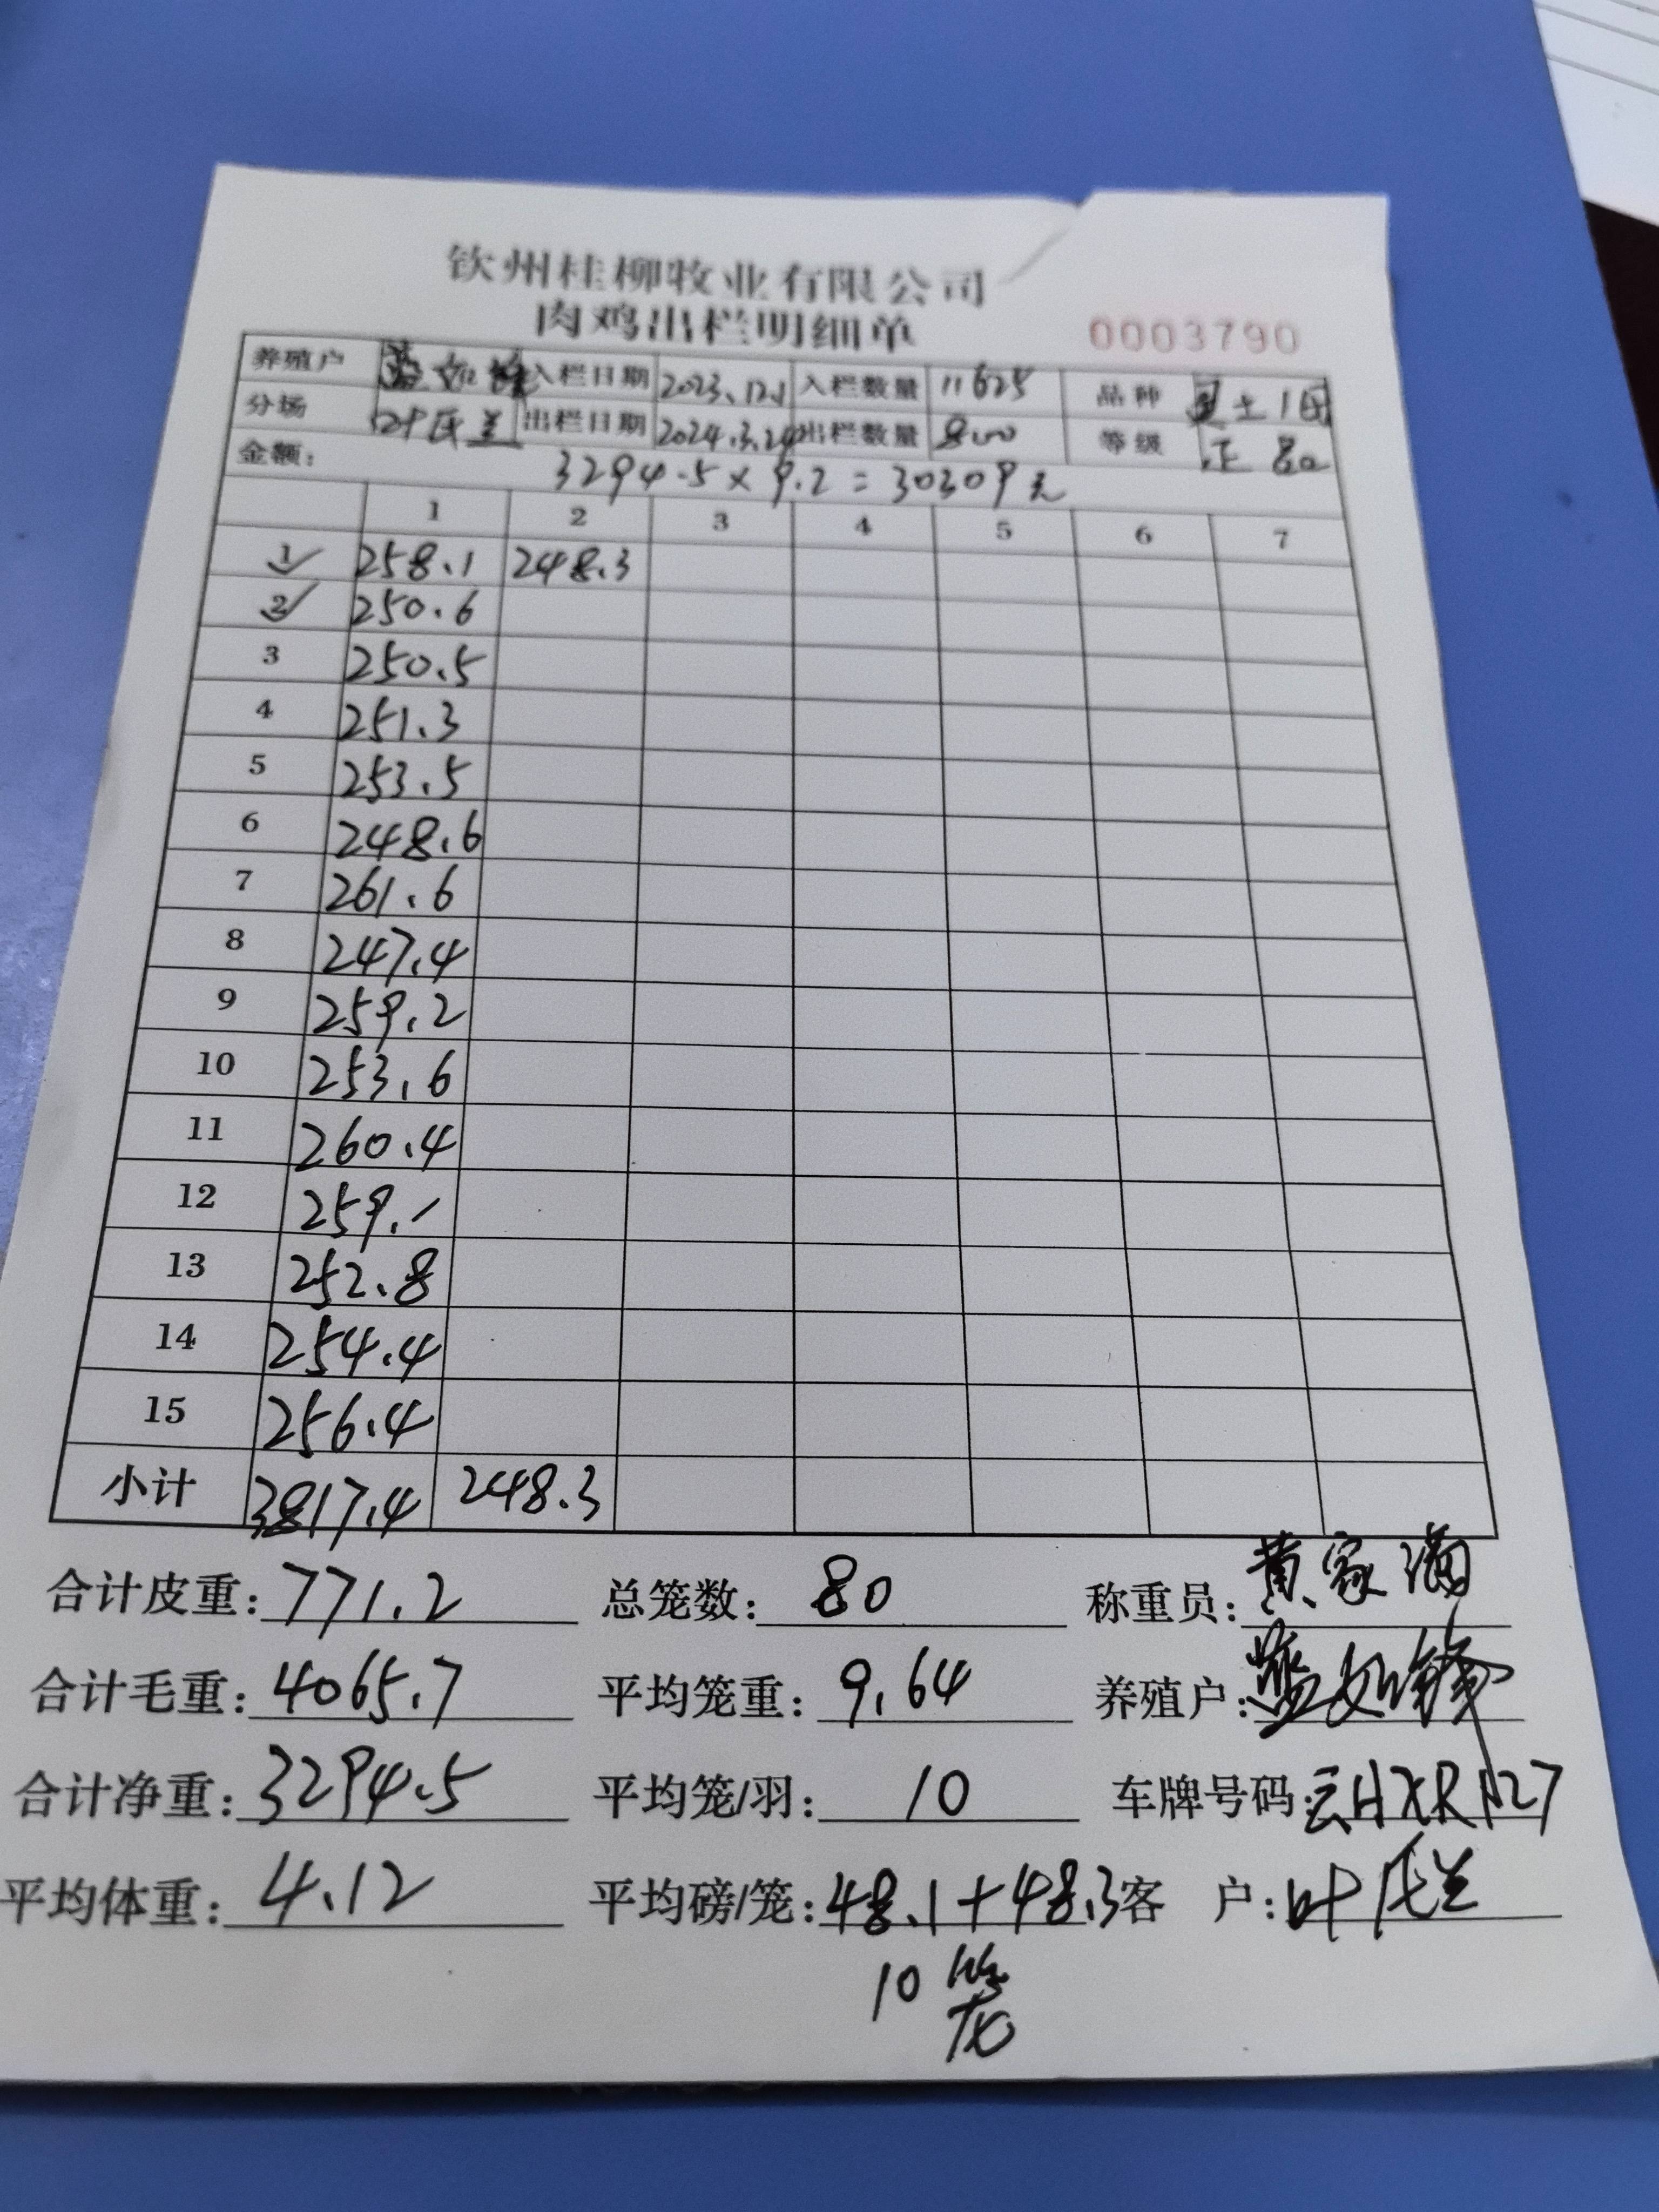 钦州桂柳牧业有限公司
肉鸡出栏明细单 0003790
养殖户 入栏日期 2023.12.1 入栏数量 11625 品种 土1
分场 叶氏兰 出栏日期 2024.3.24 出栏数量 800 等级 正品
金额: 3294.5×9.2=30309元
1 2 3 4 5 6 7
1 258.1 248.3
2 250.6
3 250.5
4 251.3
5 253.5
6 248.6
7 261.6
8 247.4
9 259.2
10 253.6
11 260.4
12 259.1
13 252.8
14 254.4
15 256.4
小计 3817.4 248.3
合计皮重: 771.2 总笼数: 80 称重员: 黄家满
合计毛重: 4065.7 平均笼重: 9.64 养殖户: 蓝如锋
合计净重: 3294.5 平均笼/羽: 10 车牌号码: 云HXR127
平均体重: 4.12 平均磅/笼: 48.1+48.3 客 户: 叶氏兰
10笼